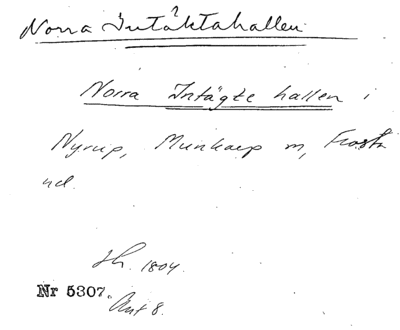 Norra Intäktahallen
Norra Intägte hallen i
Nyrup, Munkarp m, Frosta
hd.
Sk. 1804.
Nr 5307.
Ant 8.